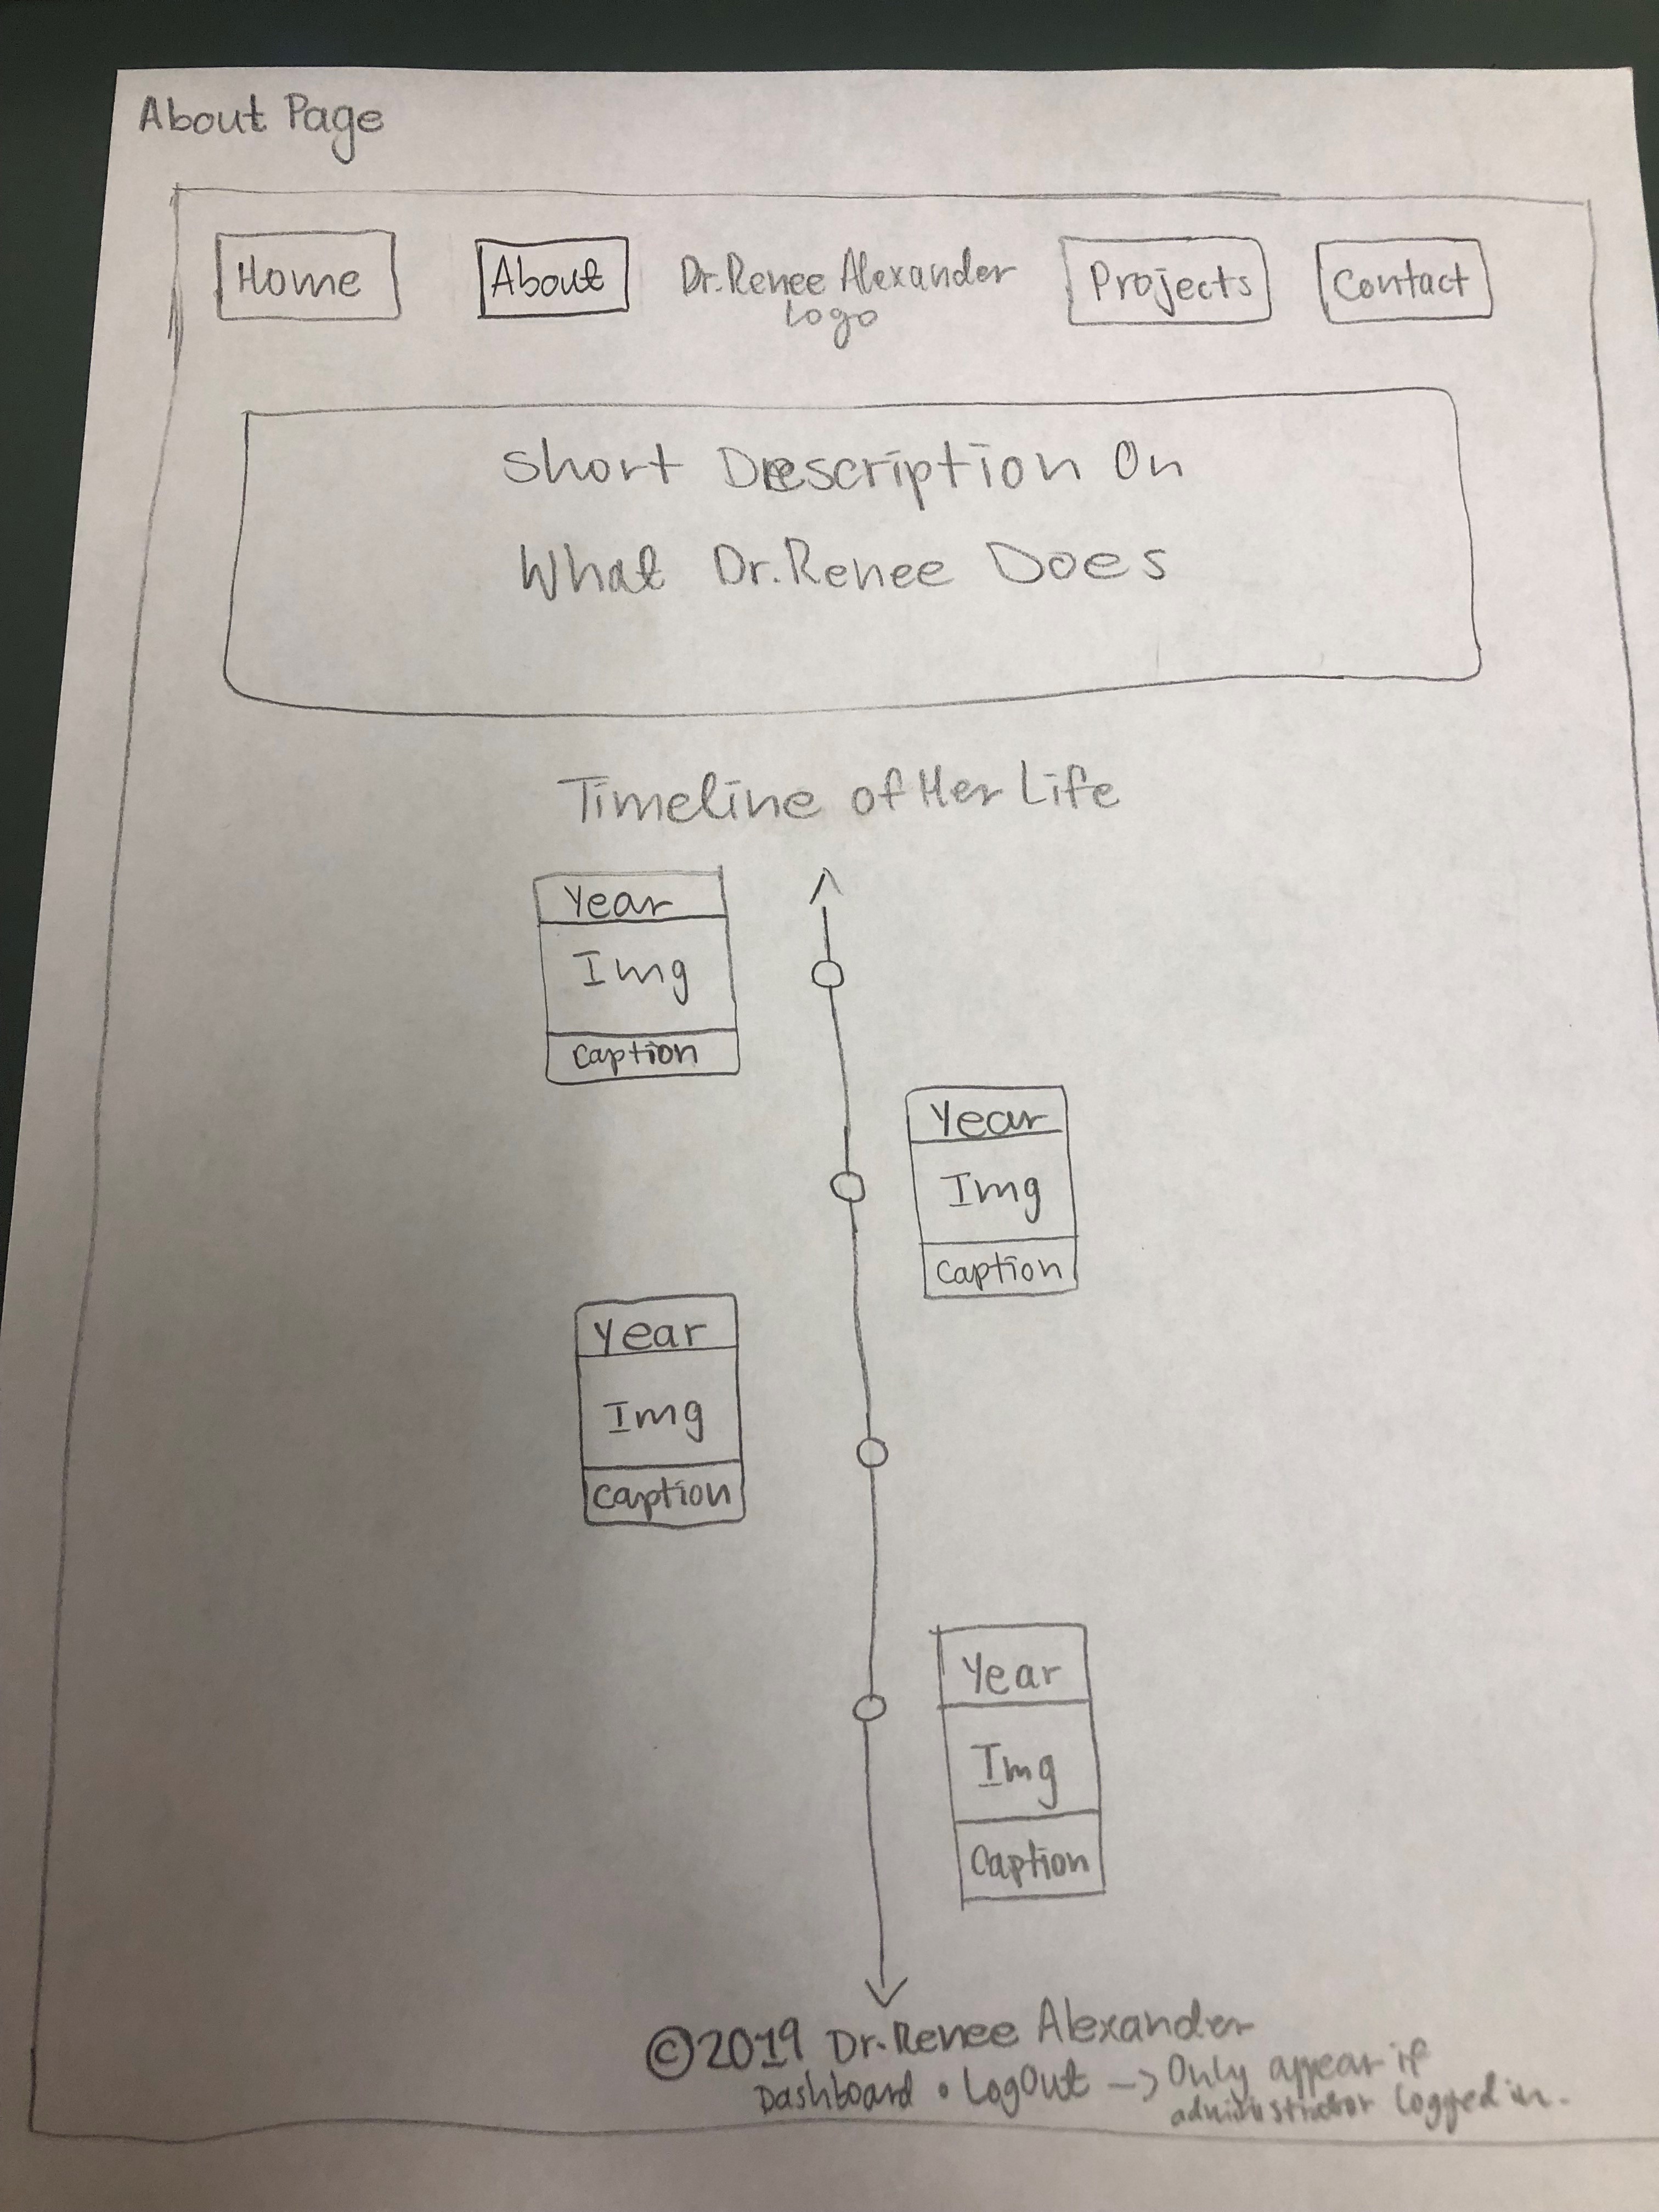 About Page
Home About Dr.Renee Alexander Projects Contact
Logo
Short Description On
What Dr.Renee Does
Timeline of Her Life
Year
Img
Caption
Year
Img
Caption
Year
Img
Caption
Year
Img
Caption
©2019 Dr.Renee Alexander
Dashboard • LogOut -> Only appear if
administrator logged in.